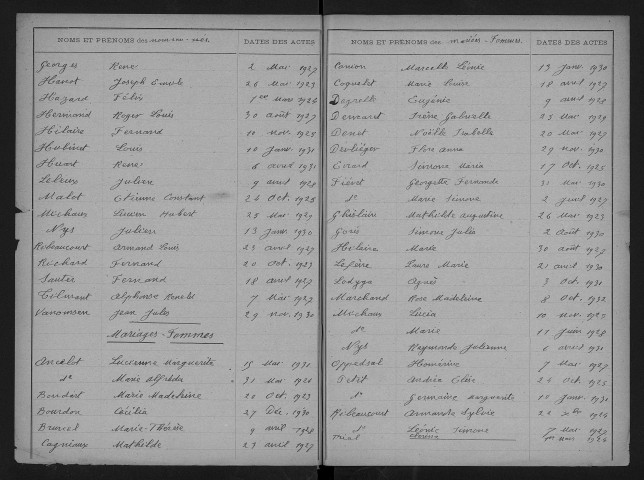 NOMS ET PRÉNOMS des DATES DES ACTES
Georges René 2 Mai 1927
Hanot Joseph Emile 26 Mai 1923
Hazard Félix 1er Mars 1924
Hermand Roger Louis 30 août 1927
Hilaire Fernand 10 nov 1925
Hubinet Louis 10 Janv 1930
Huart René 6 avril 1931
Lebrux Julien 9 avril 1928
Malot Etienne Constant 24 Oct. 1925
Michaux Lucien Hubert 25 Mai 1929
Nys Julien 13 Janv 1930
Robeaucourt Armand Louis 23 avril 1927
Richard Fernand 20 Oct. 1923
Sauter Fernand 18 avril 1927
Alphonse 7 Mai 1927
Vanoussen Jean Jules 29 nov 1930
Mariages-Femmes
Ancelot Lucienne Marguerite 15 Mai 1931
do Marie 31 Mai 1926
Boudart Marie Madeleine 20 Oct 1923
Bourdon Cécilia 27 Déc. 1930
Bruniel Marie-Thérèse 9 avril 1928
Cagniaux Mathilde 23 avril 1927
NOMS ET PRÉNOMS des mariées-Femmes DATES DES ACTES
Canion Marcelle Lénie 13 Janv 1930
Coquelet Marie Louise 18 avril 1927
Dazelle Eugénie 9 avril 1928
Irène Gabrielle 25 Mai 1929
Denot Noëlle Isabelle 20 Mai 1927
Flore Anna 29 nov. 1930
Evrard Simone Maria 17 Oct. 1925
Fiévet Georgette Fernande 31 Mai 1930
do Marie Simone 2 Juil 1927
Ghislaine Mathilde Augustine 26 Mai 1923
Goris Simone Julia 2 août 1930
Hilaire Marie 30 août 1927
Lefèvre Laure Marie 21 avril 1930
Lodyga Agnès 3 Oct. 1931
Marchand Rose Madeleine 8 Oct. 1932
Michaux Lucia 10 nov 1925
do Marie 11 Juin 1928
Nys Raymonde Julienne 6 avril 1931
Oppedsal Homérine 7 Mai 1927
Petit Andréa Clóe 24 Oct. 1925
do Germaine Marguerite 10 Janv. 1930
Robeaucourt Armande Sylvie
do Léonie Simone 7 Mai 1927
Trial 1er Mars 1924